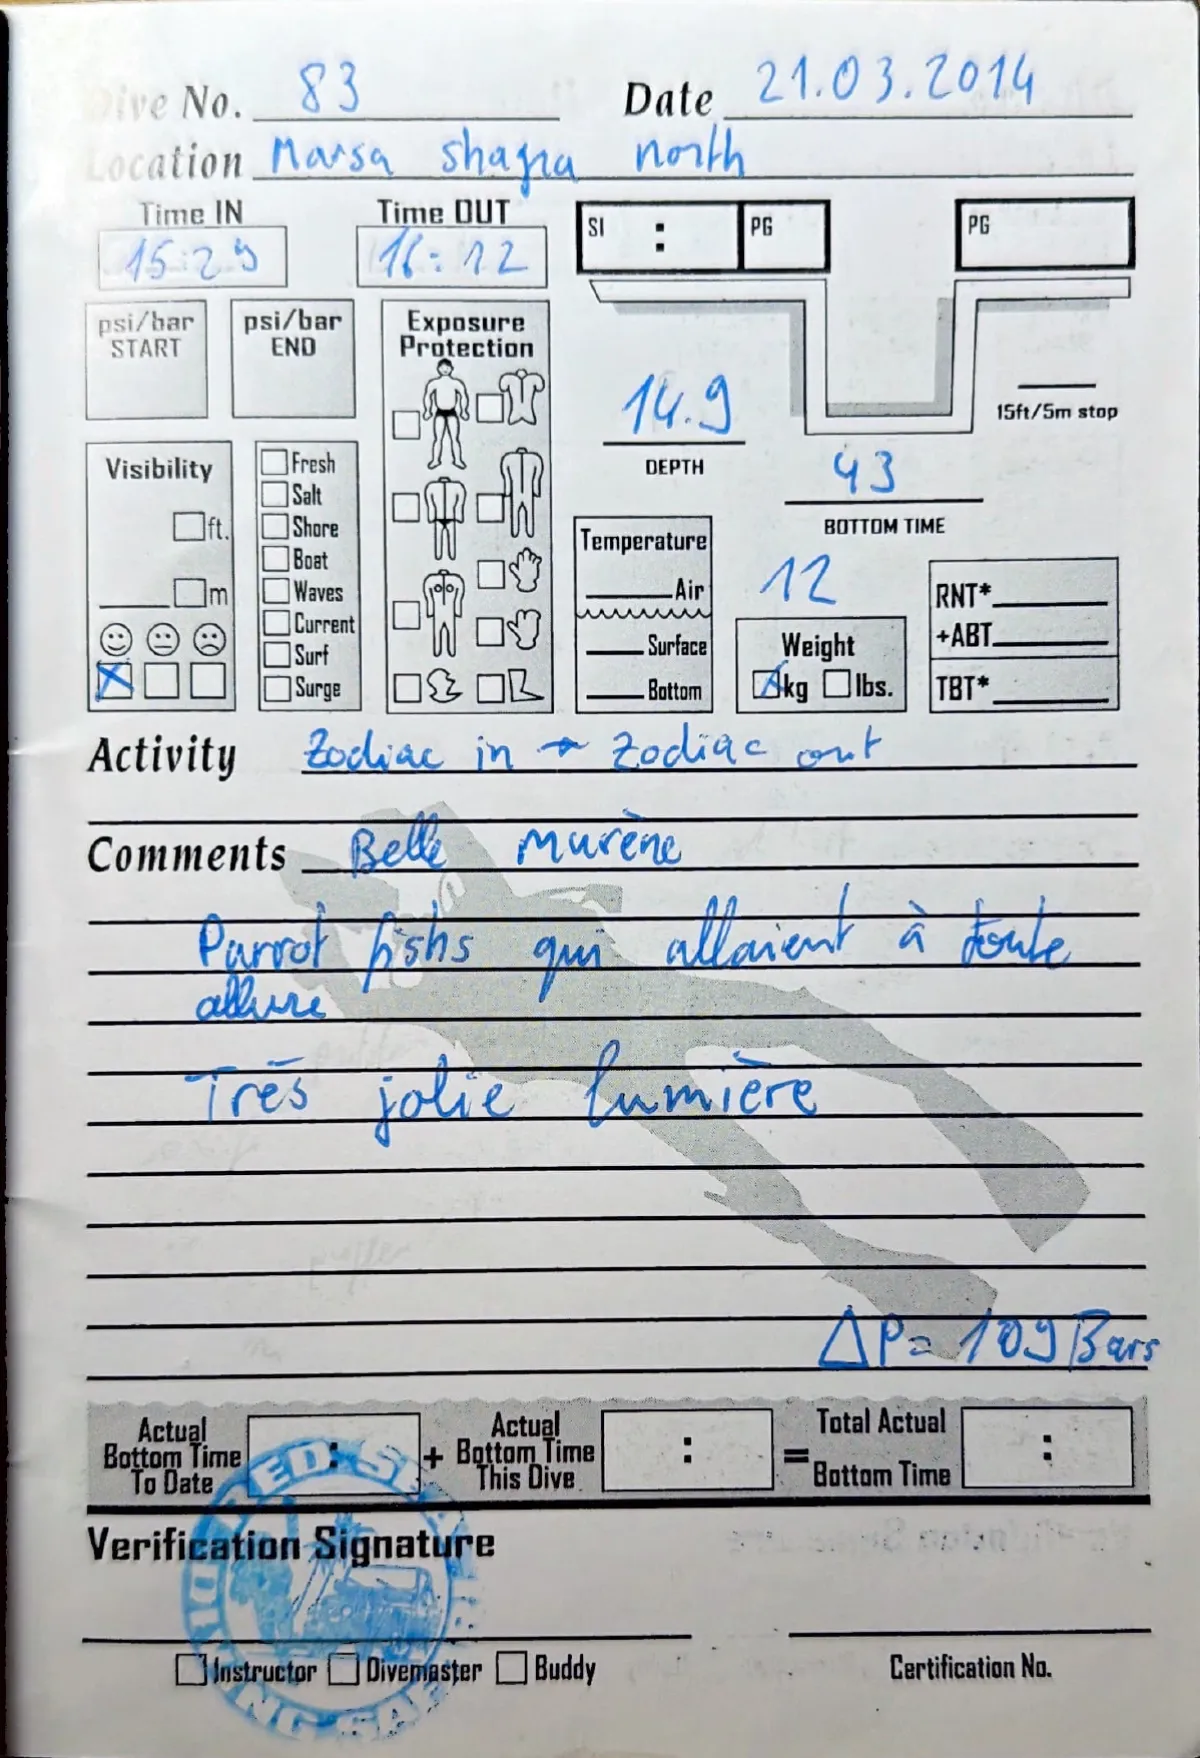 Dive No. 83 Date 21.03.2014
Location Marsa shagra north
Time IN Time OUT
15:29 16:12
SI : PG PG
psi/bar START psi/bar END Exposure Protection
14.9 15ft/5m stop
DEPTH
43
BOTTOM TIME
Visibility
ft.
m
Fresh
Salt
Shore
Boat
Waves
Current
Surf
Surge
Temperature
Air
Surface
Bottom
12
Weight
kg lbs.
RNT*
+ABT
TBT*
Activity Zodiac in → Zodiac out
Comments Belle murène
Parrot fishs qui allaient à toute
allure
Très jolie lumière
ΔP= 109 Bars
Actual Bottom Time To Date : + Actual Bottom Time This Dive : = Total Actual Bottom Time :
Verification Signature
Instructor Divemaster Buddy Certification No.